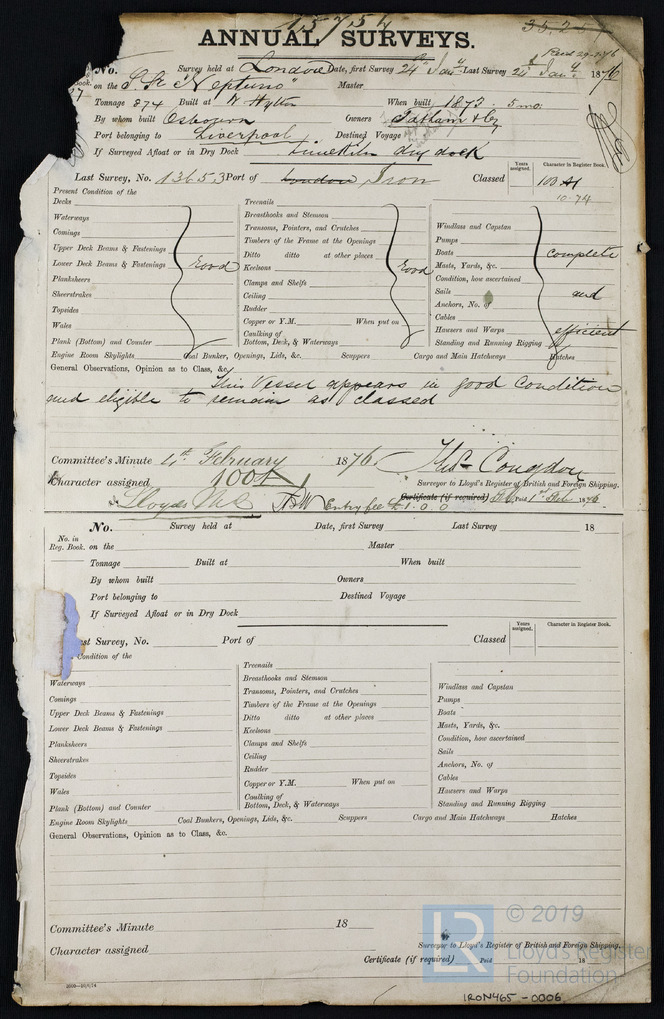 15754
3525
ANNUAL SURVEYS.
Recd 29-1-76
No. Survey held at London Date, first Survey 24th Jany Last Survey 24 Jany 1876
Book.
on the S.S. "Neptuno" Master
Tonnage 874 Built at N Hylton When built 1873. 5 mo.
By whom built Osbourn Owners Tatham & Co
Port belonging to Liverpool Destined Voyage
If Surveyed Afloat or in Dry Dock Limekiln dry dock
Years assigned. Character in Register Book.
Last Survey, No. 13653 Port of London Iron Classed 100 A1
10-74
Present Condition of the
Decks
Waterways
Comings
Upper Deck Beams & Fastenings
Lower Deck Beams & Fastenings Good
Planksheers
Sheerstrakes
Topsides
Wales
Plank (Bottom) and Counter
Treenails
Breasthooks and Stemson
Transoms, Pointers, and Crutches
Timbers of the Frame at the Openings
Ditto ditto at other places
Keelsons Good
Clamps and Shelfs
Ceiling
Rudder
Copper or Y.M. When put on
Caulking of
Bottom, Deck, & Waterways
Windlass and Capstan
Pumps
Boats complete
Masts, Yards, &c.
Condition, how ascertained
Sails and
Anchors, No. of
Cables
Hawsers and Warps efficient
Standing and Running Rigging
Engine Room Skylights Coal Bunker, Openings, Lids, &c. Scuppers Cargo and Main Hatchways Hatches
General Observations, Opinion as to Class, &c.
This Vessel appears in good condition
and eligible to remain as classed
Committee's Minute 4th February 1876. Thos Congdon
Character assigned 100A1 Surveyor to Lloyd's Register of British and Foreign Shipping.
Lloyds MC Entry fee £1.0.0 Certificate (if required) 1st Feb 1876.
No. Survey held at Date, first Survey Last Survey 18
No. in
Reg. Book. on the Master
Tonnage Built at When built
By whom built Owners
Port belonging to Destined Voyage
If Surveyed Afloat or in Dry Dock
Years assigned. Character in Register Book.
st Survey, No. Port of Classed
Condition of the
Waterways
Comings
Upper Deck Beams & Fastenings
Lower Deck Beams & Fastenings
Planksheers
Sheerstrakes
Topsides
Wales
Plank (Bottom) and Counter
Treenails
Breasthooks and Stemson
Transoms, Pointers, and Crutches
Timbers of the Frame at the Openings
Ditto ditto at other places
Keelsons
Clamps and Shelfs
Ceiling
Rudder
Copper or Y.M. When put on
Caulking of
Bottom, Deck, & Waterways
Windlass and Capstan
Pumps
Boats
Masts, Yards, &c.
Condition, how ascertained
Sails
Anchors, No. of
Cables
Hawsers and Warps
Standing and Running Rigging
Engine Room Skylights Coal Bunkers, Openings, Lids, &c. Scuppers Cargo and Main Hatchways Hatches
General Observations, Opinion as to Class, &c.
Committee's Minute 18
Character assigned Surveyor to Lloyd's Register of British and Foreign Shipping.
Certificate (if required) Paid 18
LR © 2019
Lloyd's Register
Foundation
IRON465-0006